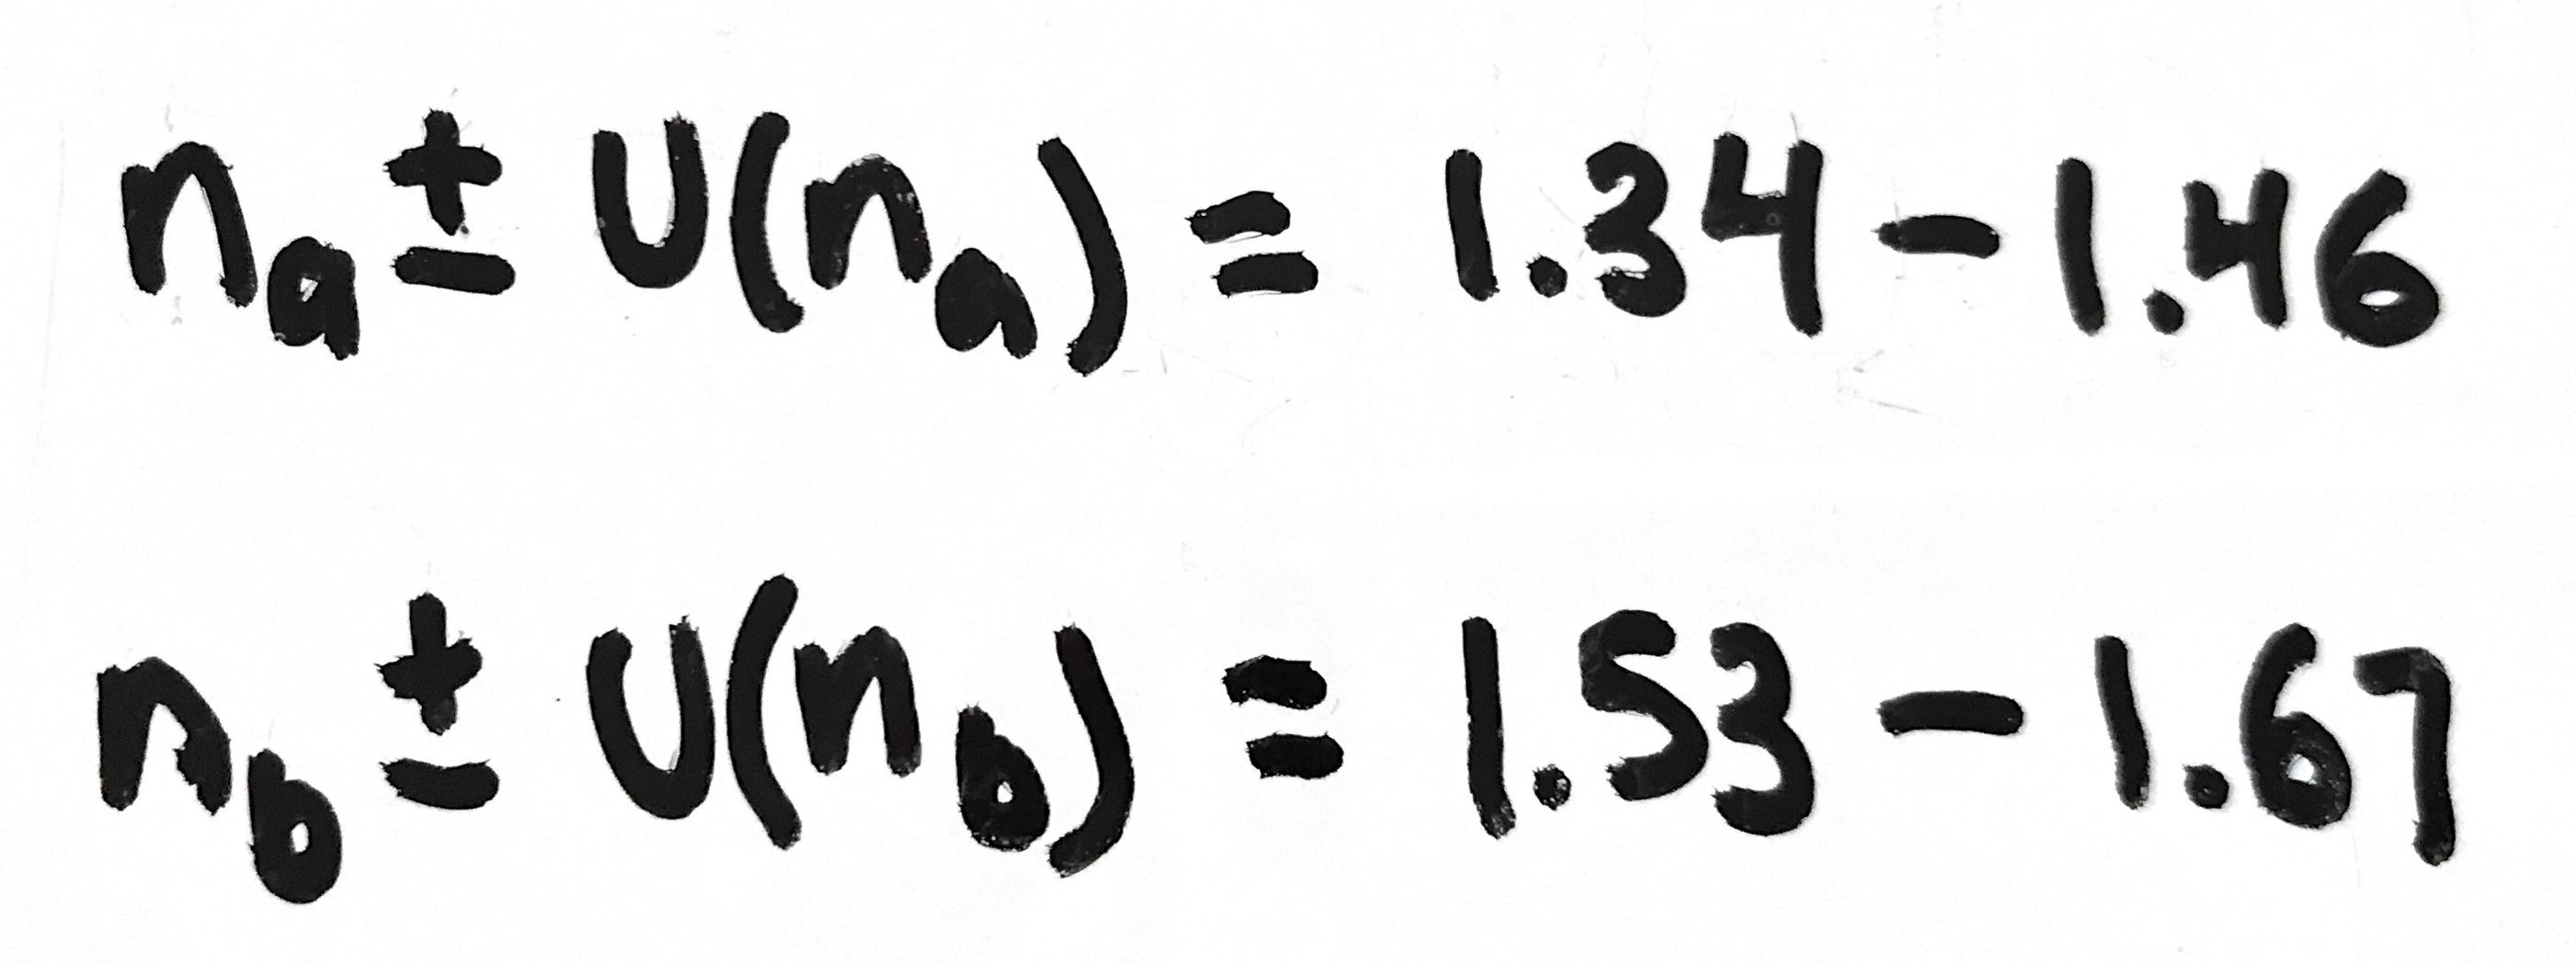 nₐ ± U(nₐ) = 1.34 - 1.46
n_b ± U(n_b) = 1.53 - 1.67